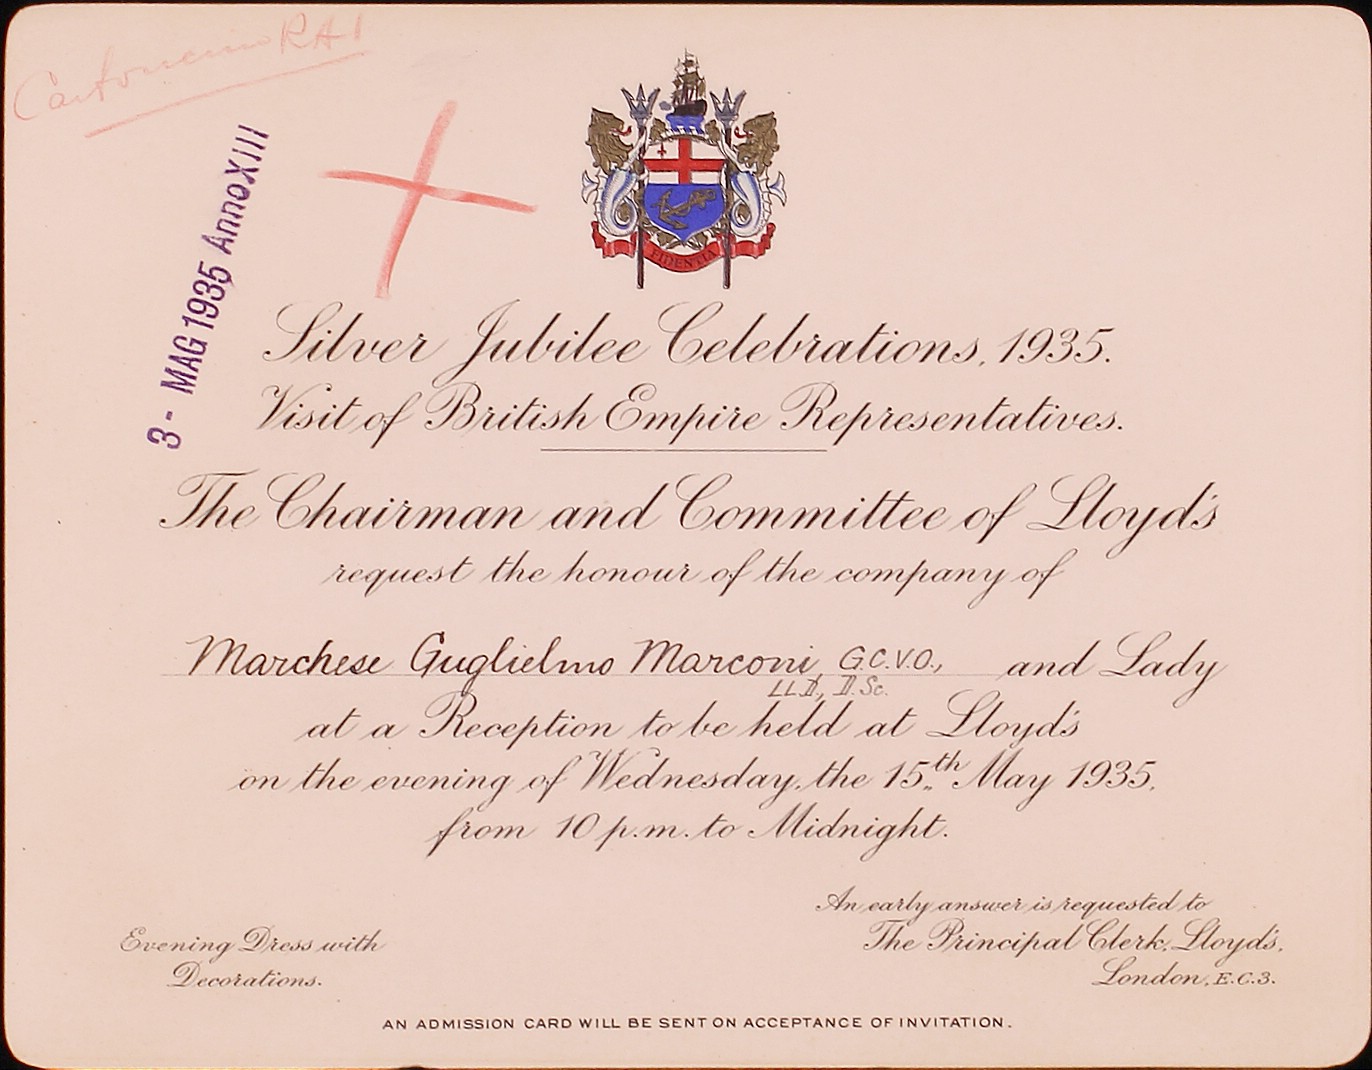 Cartoncino RAI
3 - MAG 1935 Anno XIII
FIDENTIA
Silver Jubilee Celebrations, 1935.
Visit of British Empire Representatives.
The Chairman and Committee of Lloyd's
request the honour of the company of
Marchese Guglielmo Marconi G.C.V.O., and Lady
LL.D., D.Sc.
at a Reception to be held at Lloyd's
on the evening of Wednesday, the 15th May 1935,
from 10 p.m. to Midnight.
An early answer is requested to
The Principal Clerk, Lloyd's,
London, E.C.3.
Evening Dress with
Decorations.
AN ADMISSION CARD WILL BE SENT ON ACCEPTANCE OF INVITATION.